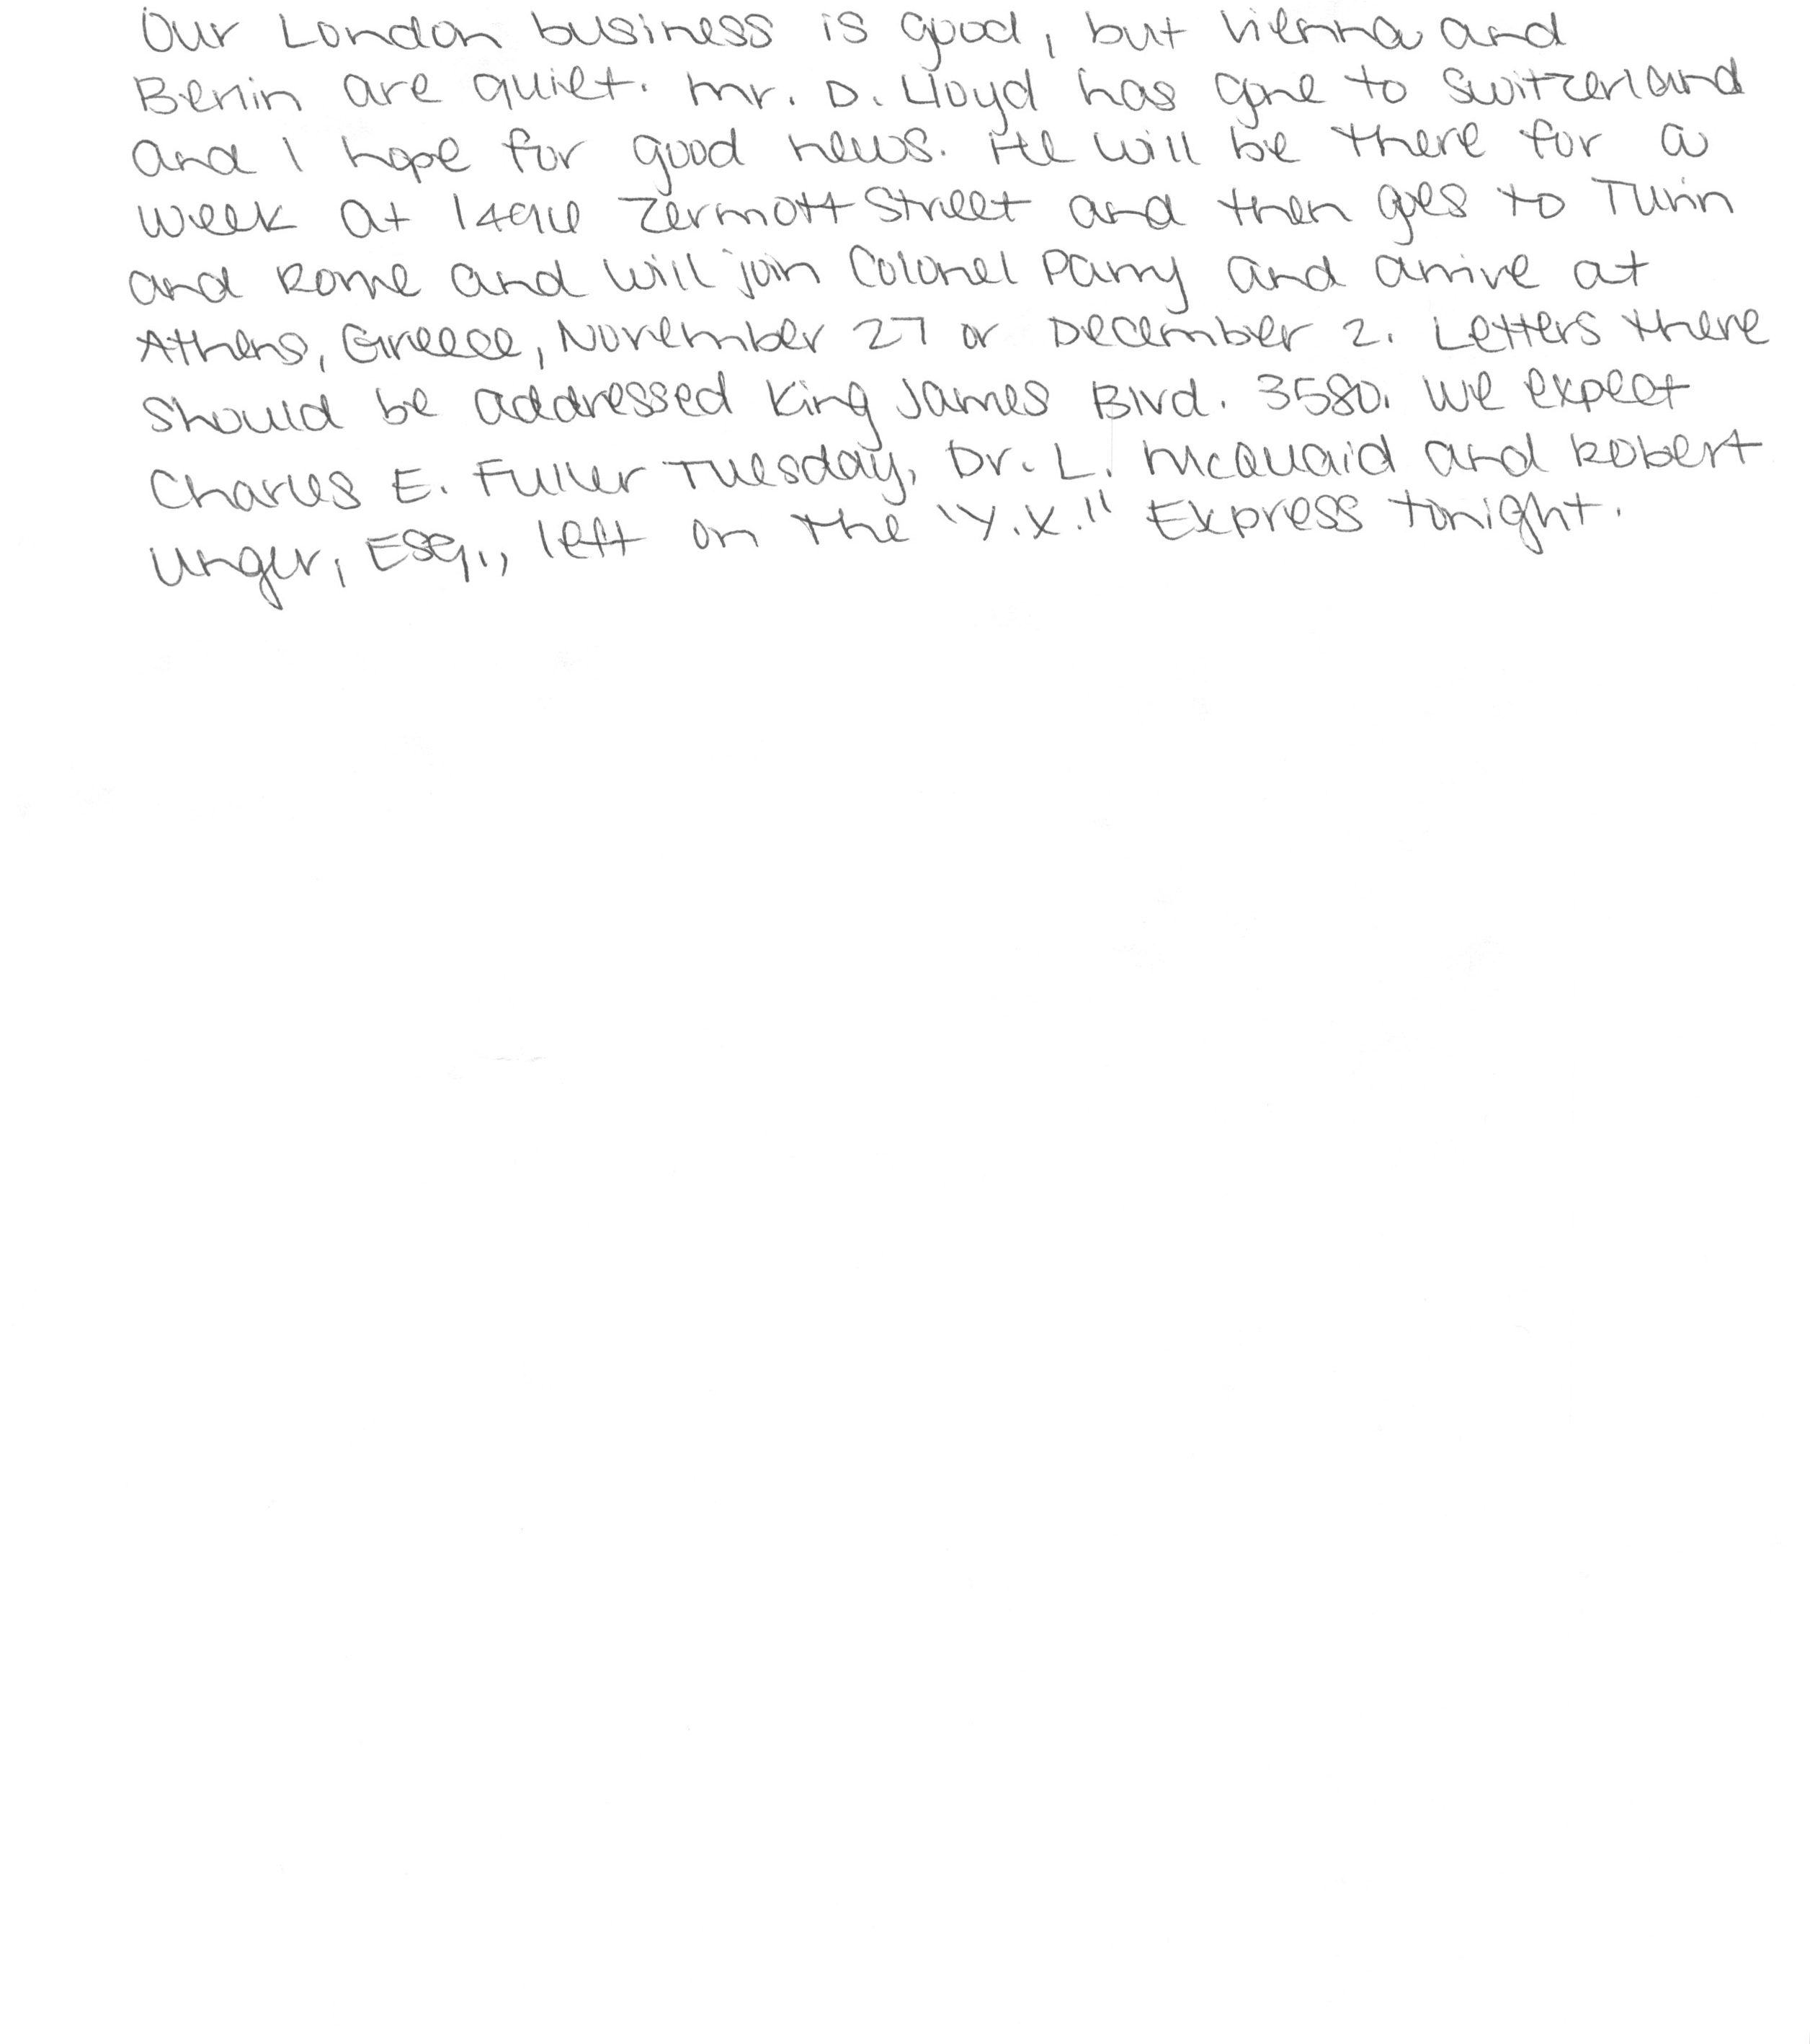 Our London business is good, but Vienna and
Berlin are quiet. Mr. D. Lloyd has gone to Switzerland
and I hope for good news. He will be there for a
week at 1496 Zermott Street and then goes to Turin
and Rome and will join Colonel Parry and arrive at
Athens, Greece, November 27 or December 2. Letters there
should be addressed King James Blvd. 3580. We expect
Charles E. Fuller Tuesday. Dr. L. McQuaid and Robert
Unger, Esq., left on the "Y.X." Express tonight.